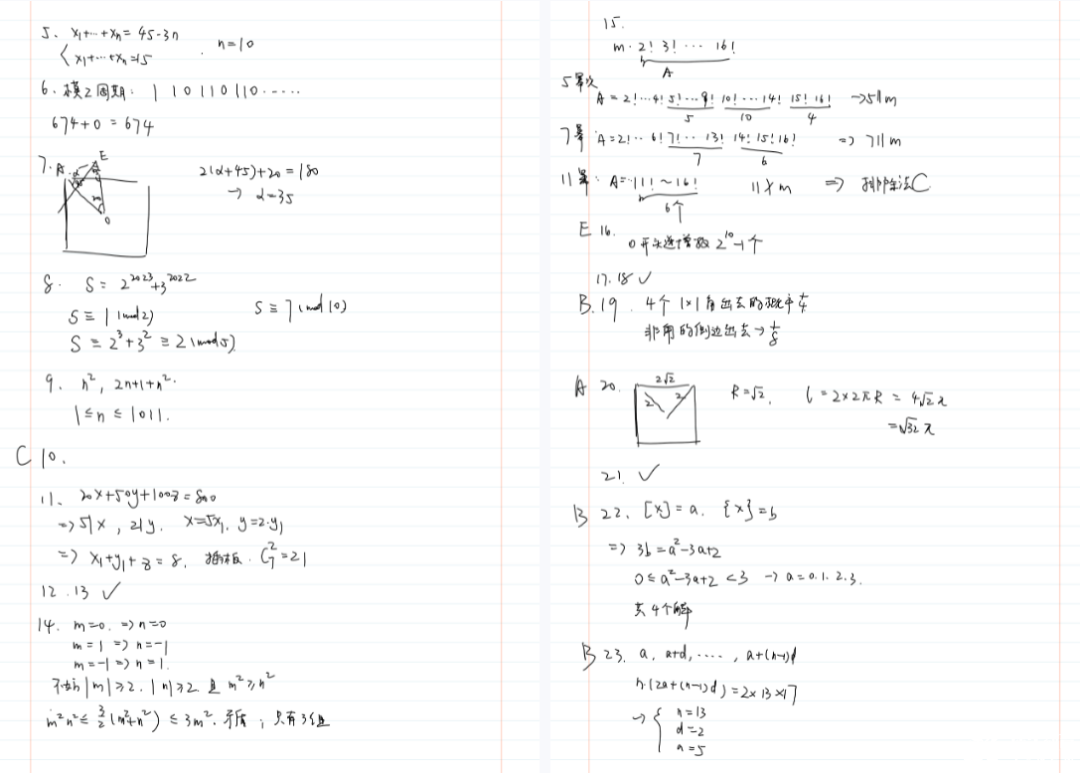 5、 x₁+…+xₙ = 45-3n
x₁+…+xₙ=15
n=10
6. 模2周期: 1 1 0 1 1 0 1 1 0 ……
674+0 = 674
7.
A
E
α
20
O
2(α+45)+20=180
→ α=35
8. S = 2^2023+3^2022
S≡1(mod 2)
S≡2³+3²≡2(mod 5)
S≡7(mod 10)
9. n², 2n+1+n².
1≤n≤1011.
C 10.
11、 20x+50y+100z=800
=>5|x, 2|y. x=5x₁, y=2·y₁
=> x₁+y₁+z=8. 插板. C₇²=21
12.13 ✓
14. m=0. =>n=0
m=1 =>n=-1
m=-1=>n=1.
不妨|m|≥2.|n|≥2 且 m²≥n²
m²n²≤3/2(m²+n²)≤3m². 矛盾; 只有3组
15.
m·2!3!… 16!
A
5幂次
A=2!…4! 5!…9! 10!…14! 15!16! →5||m
5 10 4
7幂 A=2!…6! 7!…13! 14!15!16! => 7||m
7 6
11幂: A=…11!~16! 11∤m => 排除法C
6个
E 16.
0开头递增数 2^10-1个
17.18 ✓
B.19. 4个1×1角出去的概率1/4
非角的侧边出去→1/8
A 20.
2√2
2 2
R=√2. l=2×2πR=4√2π
=√32π
21. ✓
B 22、[x]=a. {x}=b
=> 3b=a²-3a+2
0≤a²-3a+2<3 →a=0.1.2.3.
共4个解
B 23. a, a+d, ……, a+(n-1)d
n·(2a+(n-1)d)=2×13×17
→ { n=13
d=2
a=5